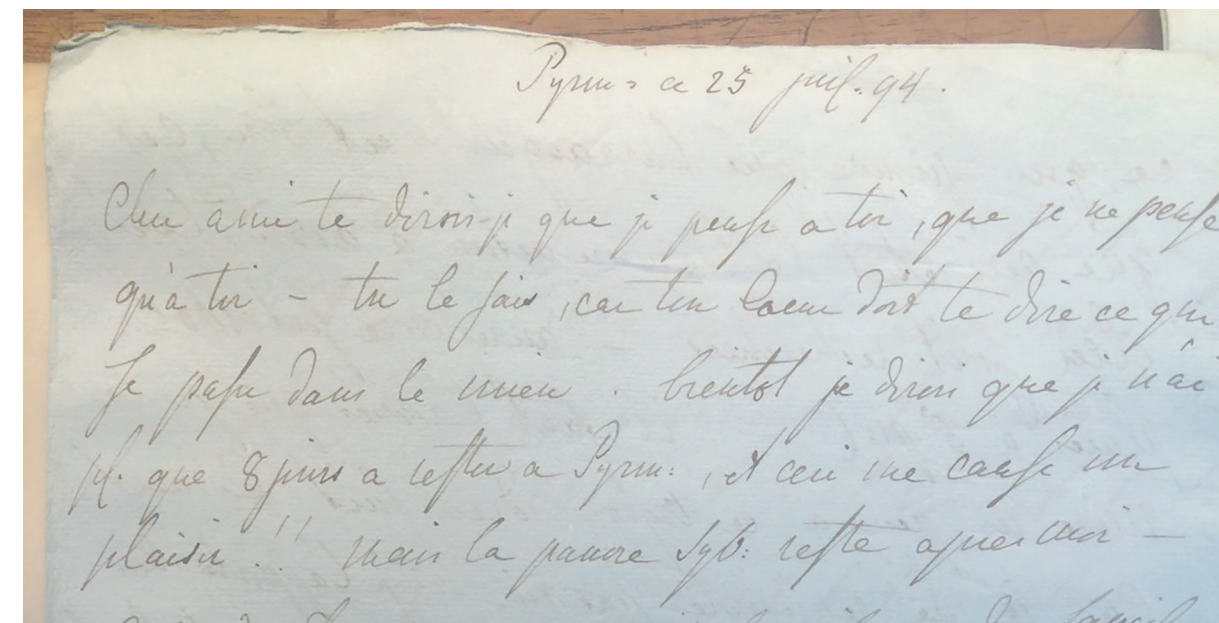 Pyrm: ce 25 juil. 94.
Cher ami te dirois-je que je pense a toi, que je ne pense
qu'a toi – tu le sais, car ton coeur doit te dire ce qui
se passe dans le mien. bientot je dirai que je n'ai
pl. que 8 jours a rester a Pyrm:, et ceci me cause un
plaisir!! mais la pauvre Syb: reste apres moi –